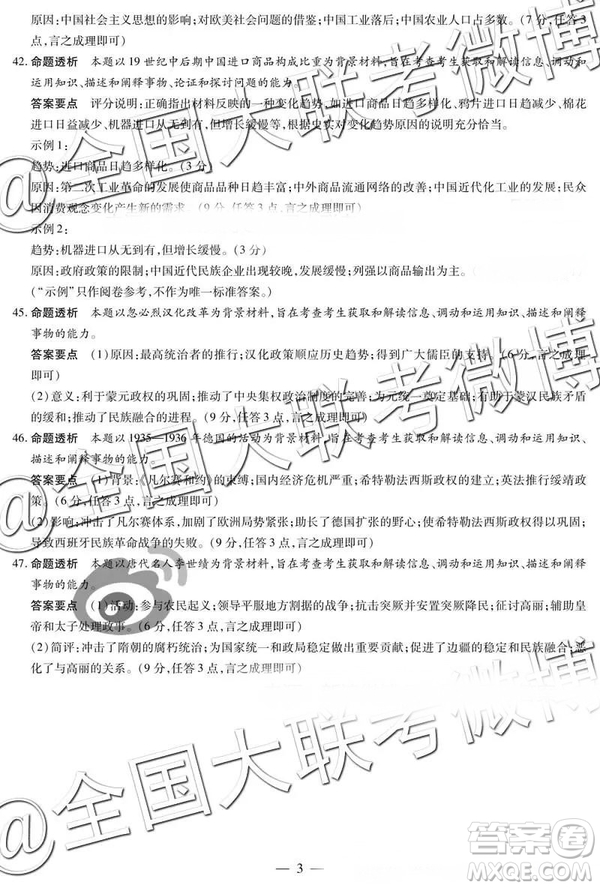 原因:中国社会主义思想的影响;对欧美社会问题的借鉴;中国工业落后;中国农业人口占多数。(7 分,任答 3 点,言之成理即可)
42. 命题透析 本题以 19 世纪中后期中国进口商品构成比重为背景材料,旨在考查考生获取和解读信息、调动和运用知识、描述和阐释事物、论证和探讨问题的能力。
答案要点 评分说明:正确指出材料反映的一种变化趋势,如进口商品日趋多样化、鸦片进口日趋减少、棉花进口日益减少、机器进口从无到有,但增长缓慢等;变化趋势原因的说明充分恰当。
示例 1:
趋势:进口商品日趋多样化。(3 分)
原因:第二次工业革命的发展使商品品种日趋丰富;中外商品流通网络的改善;中国近代化工业的发展;民众因消费观念变化产生新的需求。(9 分)
示例 2:
趋势:机器进口从无到有,但增长缓慢。(3 分)
原因:政府政策的限制;中国近代民族企业出现较晚、发展缓慢;列强以商品输出为主。
(“示例”只作阅卷参考,不作唯一标准答案。)
45. 命题透析 本题以忽必烈汉化改革为背景材料,旨在考查考生获取和解读信息、调动和运用知识、描述和阐释事物的能力。
答案要点 (1)原因:最高统治者的推行;汉化政策顺应历史趋势;得到广大儒臣的支持。(6 分,任答 3 点,言之成理即可)
(2)意义:利于蒙元政权的巩固;推动了中央集权政治制度的发展;为元统一奠定基础;有助于蒙汉民族矛盾的缓和;推动了民族融合的进程。(9 分,任答 3 点,言之成理即可)
46. 命题透析 本题以 1935—1936 年德国的活动为背景材料,旨在考查考生获取和解读信息、调动和运用知识、描述和阐释事物的能力。
答案要点 (1)背景:《凡尔赛和约》的束缚;国内经济危机严重;希特勒法西斯政权的建立;英法推行绥靖政策。(6 分,任答 3 点,言之成理即可)
(2)影响:冲击了凡尔赛体系,加剧了欧洲局势紧张;助长了德国扩张的野心;使希特勒法西斯政权得以巩固;导致西班牙民族革命战争的失败。(9 分,任答 3 点,言之成理即可)
47. 命题透析 本题以唐代名人李世绩为背景材料,旨在考查考生获取和解读信息、调动和运用知识、描述和阐释事物的能力。
答案要点 (1)活动:参与农民起义;领导平服地方割据的战争;抗击突厥并安置突厥降民;征讨高丽;辅助皇帝和太子处理政事。(6 分,任答 3 点,言之成理即可)
(2)简评:冲击了隋朝的腐朽统治;为国家统一和政局稳定做出重要贡献;促进了边疆的稳定和民族融合;恶化了与高丽的关系。(9 分,任答 3 点,言之成理即可)
@全国大联考微博
@全国大联考微博
@全国大联考微博
— 3 —
答案圈
MXQE.COM